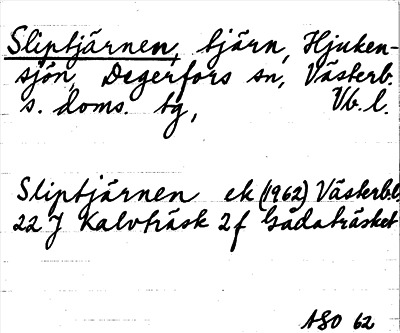 Sliptjärnen, tjärn, Hjuken-
sjön, Degerfors sn, Västerb.
s. doms. tg, Vb. l.
Sliptjärnen ek (1962) Västerb.l.
22 J Kalvträsk 2 f Gädaträsket
ASO 62